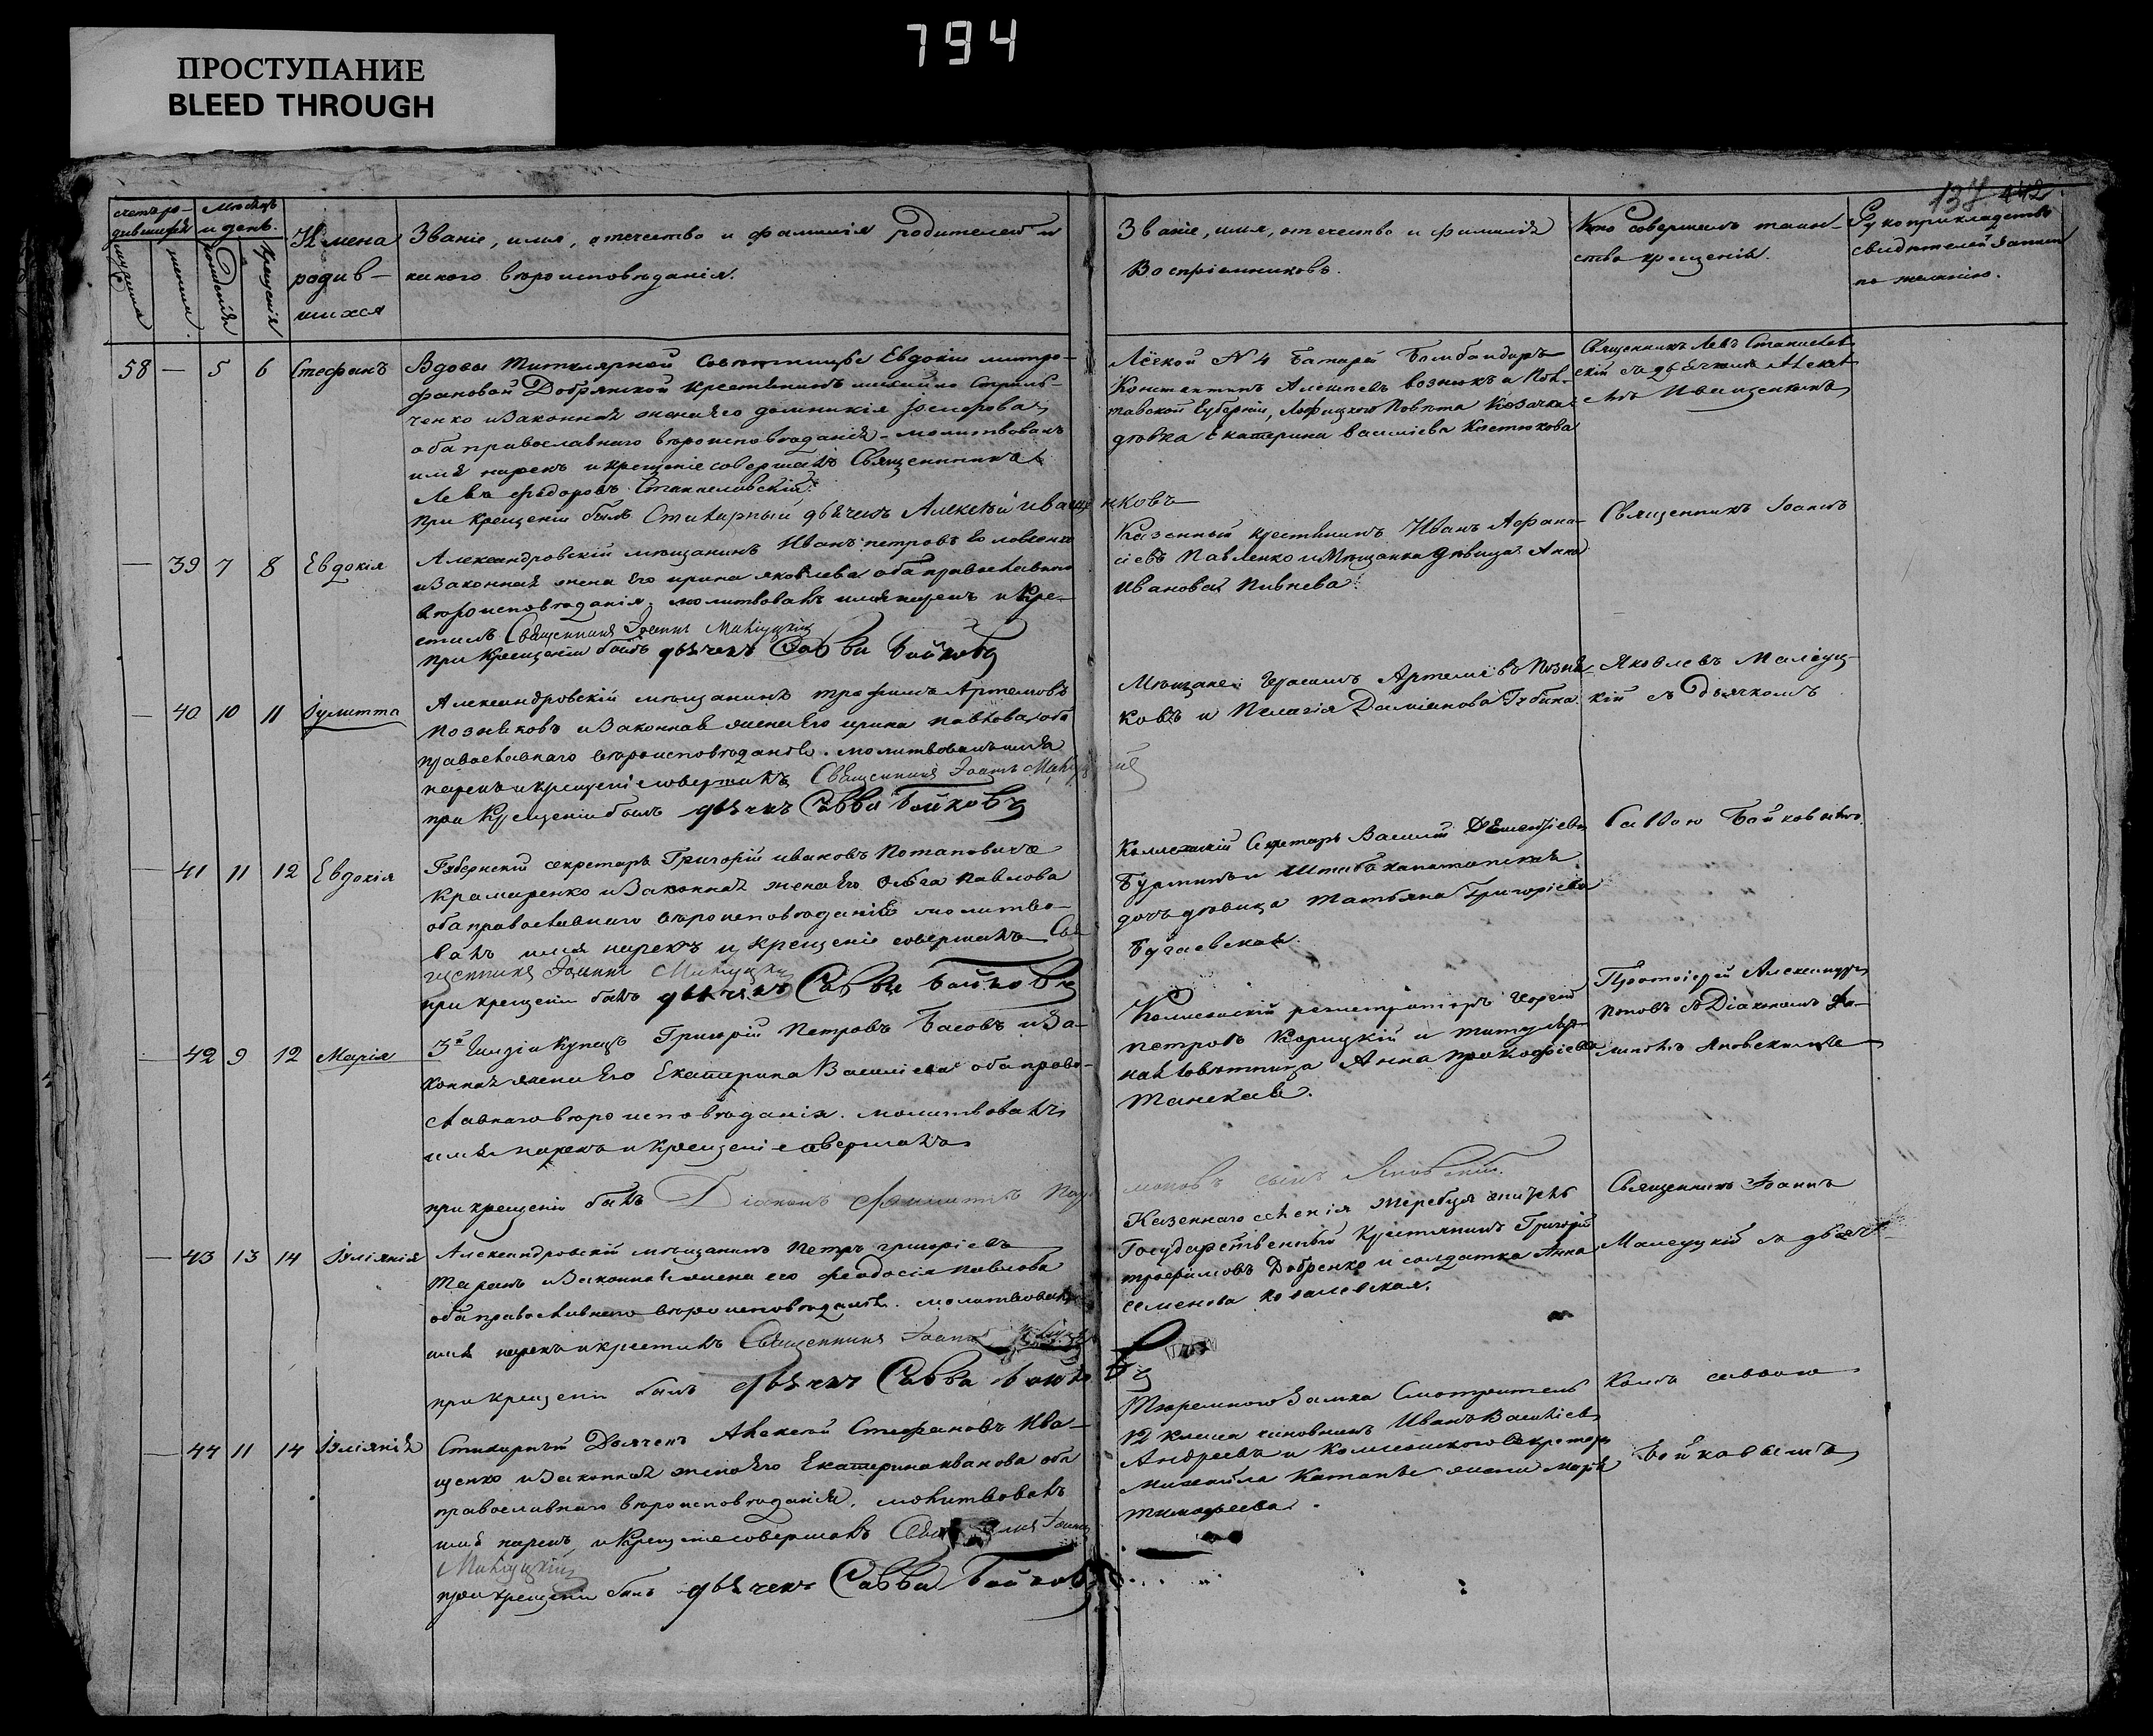 794
ПРОСТУПАНИЕ
BLEED THROUGH
137 442
счетъ ро-
дившихся
Мѣсяцъ
и день.
рожденія
крещенія
Имена
родив-
шихся
Званіе, имя, отечество и фамилія Родителей и
какого вѣроисповѣданія.
Званіе, имя, отечество и фамилія
Воспріемниковъ.
Кто совершалъ таин-
ство крещенія.
Рукоприкладство
свидѣтелей записи
по желанію.
58 — 5 6 Стефанъ
Вдовы Титулярной Совѣтницы Евдокіи митро-
фановой Добрянской крестьянинъ
ченко и Законная жена его домникія Іосифова
оба православнаго вѣроисповѣданія - молитвовалъ
имя нарекъ и крещеніе совершалъ Священникъ
Левъ Федоровъ Станиславскій
При крещеніи былъ Стихарный дьячекъ Алексѣй Иващенковъ
Лёгкой N 4 Батареи Бомбандиръ
Константинъ Алексѣевъ и Пол-
тавской Губерніи, Повѣта Козачка
дѣвка Екатерина василіева Костюкова
Священникъ Левъ Станислав-
скій съ дьячкомъ Алексѣ-
емъ Иващенкомъ
— 39 7 8 Евдокія
Александровскій мѣщанинъ Иванъ петровъ
и Законная жена Его ирина яковлева оба православнаго
вѣроисповѣданія, молитвовалъ имя нарекъ и кре-
стилъ Священникъ Іоаннъ Малеуцкій
при крещеніи былъ дьячекъ Савва Бойковъ
Казенный крестьянинъ Иванъ Афана-
сіевъ Павленко и Мѣщанка дѣвица Анна
Ивановая Пивнева
Священникъ Іоаннъ
— 40 10 11 Іулитта
Александровскій мѣщанинъ трофимъ Артемовъ
Позняковъ и Законная жена его ирина павлова оба
православнаго вѣроисповѣданія. молитвовалъ имя
нарекъ и крещеніе совершалъ Священникъ Іоаннъ Малеуцкій
при Крещеніи былъ дьячекъ Савва Бойковъ
Мѣщане Герасимъ Артеміевъ Позня-
ковъ и Пелагія Даміанова Губина
Яковлевъ Малеуц-
кій съ Дьячкомъ
— 41 11 12 Евдокія
Губернскій секретарь Григорій ивановъ Потаповичъ
Крамаренко и Законная жена Его Ольга Павлова
оба православнаго вѣроисповѣданія молитво-
валъ имя нарекъ и крещеніе совершалъ Свя-
щенникъ Іоаннъ Малеуцкій
при крещеніи былъ дьячекъ Савва Бойковъ
Коллежскій Секретарь Василій Дементіевъ
и Штабскапитанская
дочь дѣвица Татьяна Григоріева
Бугаевская.
Саввою Бойковымъ.
— 42 9 12 Марія
3й Гилдіи Купецъ Григорій Петровъ Басовъ и За-
конная жена Его Екатерина Василіева оба право-
славнаго вѣроисповѣданія. молитвовалъ
имя нарекъ и крещеніе совершалъ
при крещеніи былъ Діаконъ Филиппъ
моновъ сынъ Яновскій.
Колежскій регистраторъ
петровъ Корицкій и титуляр-
ная Совѣтница Анна Прокофіева
Танская.
Протоіерей Александръ
Поповъ съ Діакономъ Фи-
липпомъ Яновскимъ
— 43 13 14 Іуліянія
Александровскій мѣщанинъ Петръ григоріевъ
Таранъ и Законная жена его феодосія павлова
оба православнаго вѣроисповѣданія. молитвовалъ
имя нарекъ и крестилъ Священникъ Іоаннъ
при крещеніи былъ дьячекъ Савва Бойковъ
Казеннаго селенія Жеребца житель
Государственный Крестьянинъ Григорій
трофимовъ Добренко и солдатка Анна
семенова ковалевская.
Священникъ Іоаннъ
Малеуцкій съ дьяч-
— 44 11 14 Іуліянія
Стихарный Дьячекъ Алексѣй Стефановъ Ива-
щенко и Законная жена Его Екатерина иванова оба
православнаго вѣроисповѣданія, молитвовалъ
имя нарекъ и Крещеніе совершалъ Священникъ Іоаннъ
Малеуцкій
при крещеніи былъ дьячекъ Савва Бойковъ
Тюремнаго Замка Смотритель
12 класса чиновникъ Иванъ Василіевъ
Андреевъ и Коллежскаго Секретаря
михайла жена Марія
тимофеева.
комъ саввою
Бойковымъ